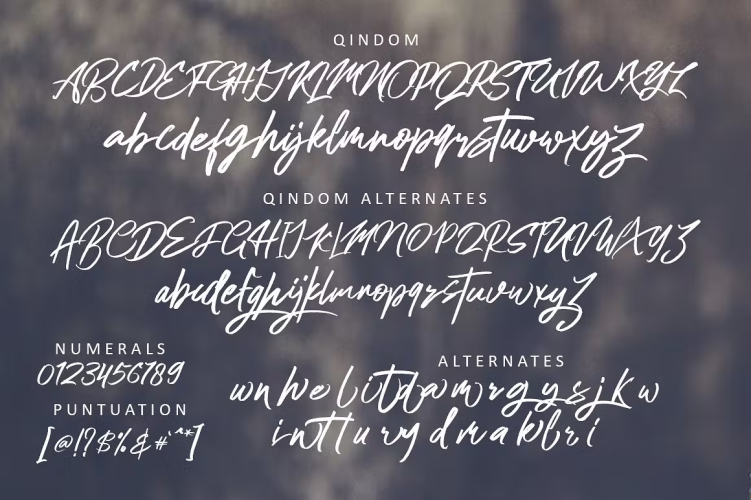 QINDOM
ABCDEFGHIJKLMNOPQRSTUVWXYZ
abcdefghijklmnopqrstuvwxyz
QINDOM ALTERNATES
ABCDEFGHIJKLMNOPQRSTUVWXYZ
abcdefghijklmnopqrstuvwxyz
NUMERALS
0123456789
PUNTUATION
[@!?$%&#^*]
ALTERNATES